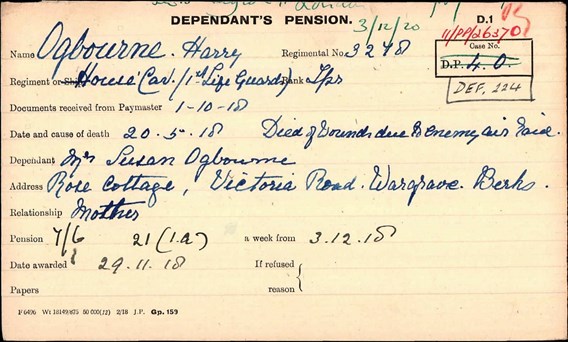 DEPENDANT'S PENSION.
3/12/20
D.1
11/PP/26370
Name Ogbourne. Harry Regimental No. 3278
Case No.
D.P. 4.0.
DEF. 224
Regiment or Ship House Cav. (1st Life Guards) Rank Tpr
Documents received from Paymaster 1-10-18
Date and cause of death 20.5.18 Died of Wounds due to enemy air raid.
Dependant Mrs Susan Ogbourne
Address Rose Cottage, Victoria Road. Wargrave. Berks.
Relationship Mother
Pension 7/6 21 (1.a) a week from 3.12.18
Date awarded 29.11.18 If refused
Papers reason
F 6496 Wt 18149/875 50 000(12) 2/18 J.P. Gp. 159